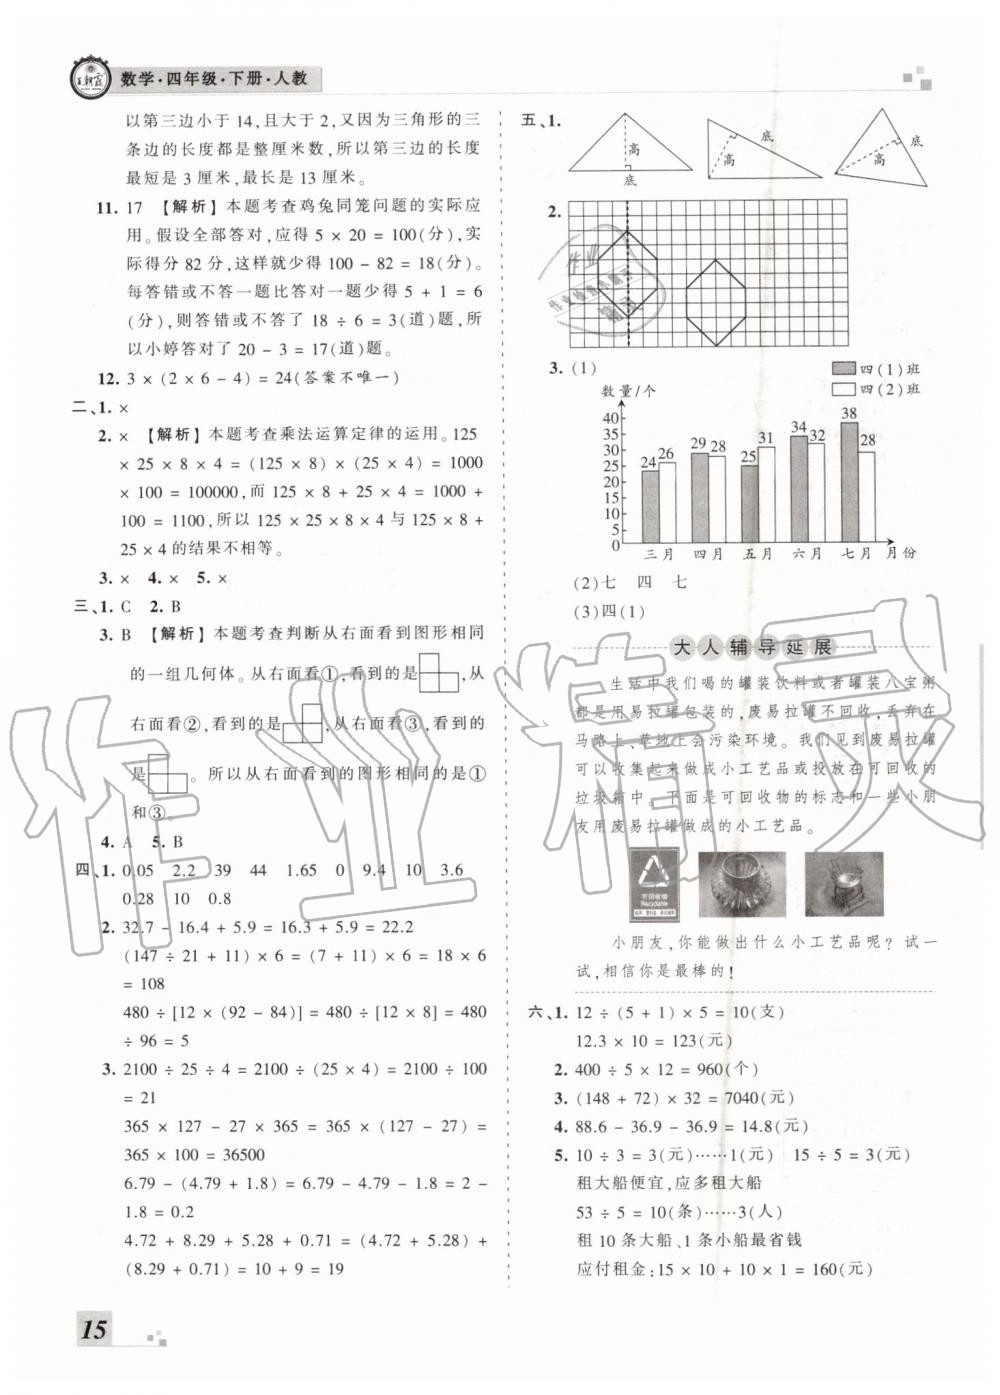 王朝霞
数学·四年级·下册·人教
以第三边小于 14,且大于 2,又因为三角形的三
条边的长度都是整厘米数,所以第三边的长度
最短是 3 厘米,最长是 13 厘米。
11. 17 【解析】本题考查鸡兔同笼问题的实际应
用。假设全部答对,应得 5 × 20 = 100(分),实
际得分 82 分,这样就少得 100 - 82 = 18(分)。
每答错或不答一题比答对一题少得 5 + 1 = 6
(分),则答错或不答了 18 ÷ 6 = 3(道)题,所
以小婷答对了 20 - 3 = 17(道)题。
12. 3 × (2 × 6 - 4) = 24(答案不唯一)
二、1. ×
2. × 【解析】本题考查乘法运算定律的运用。125
× 25 × 8 × 4 = (125 × 8) × (25 × 4) = 1000
× 100 = 100000,而 125 × 8 + 25 × 4 = 1000 +
100 = 1100,所以 125 × 25 × 8 × 4 与 125 × 8 +
25 × 4 的结果不相等。
3. × 4. × 5. ×
三、1. C 2. B
3. B 【解析】本题考查判断从右面看到图形相同
的一组几何体。从右面看①,看到的是 ,从
右面看②,看到的是 ,从右面看③,看到的
是 。所以从右面看到的图形相同的是①
和③。
4. A 5. B
四、1. 0.05 2.2 39 44 1.65 0 9.4 10 3.6
0.28 10 0.8
2. 32.7 - 16.4 + 5.9 = 16.3 + 5.9 = 22.2
(147 ÷ 21 + 11) × 6 = (7 + 11) × 6 = 18 × 6
= 108
480 ÷ [12 × (92 - 84)] = 480 ÷ [12 × 8] = 480
÷ 96 = 5
3. 2100 ÷ 25 ÷ 4 = 2100 ÷ (25 × 4) = 2100 ÷ 100
= 21
365 × 127 - 27 × 365 = 365 × (127 - 27) =
365 × 100 = 36500
6.79 - (4.79 + 1.8) = 6.79 - 4.79 - 1.8 = 2 -
1.8 = 0.2
4.72 + 8.29 + 5.28 + 0.71 = (4.72 + 5.28) +
(8.29 + 0.71) = 10 + 9 = 19
15
五、1.
高 底
高 底
高 底
2.
3. (1)
四(1)班
四(2)班
数量/个
40
35
30
25
20
15
10
5
0
24 26 29 28 25 31 34 32 38 28
三月 四月 五月 六月 七月 月份
(2)七 四 七
(3)四(1)
大人辅导延展
生活中我们喝的罐装饮料或者罐装八宝粥
都是用易拉罐包装的,废易拉罐不回收,丢弃在
马路上、草地上会污染环境。我们见到废易拉罐
可以收集起来做成小工艺品或投放在可回收的
垃圾箱中。下面是可回收物的标志和一些小朋
友用废易拉罐做成的小工艺品。
可回收物
Recyclable
小朋友,你能做出什么小工艺品呢?试一
试,相信你是最棒的!
六、1. 12 ÷ (5 + 1) × 5 = 10(支)
12.3 × 10 = 123(元)
2. 400 ÷ 5 × 12 = 960(个)
3. (148 + 72) × 32 = 7040(元)
4. 88.6 - 36.9 - 36.9 = 14.8(元)
5. 10 ÷ 3 = 3(元)……1(元) 15 ÷ 5 = 3(元)
租大船便宜,应多租大船
53 ÷ 5 = 10(条)……3(人)
租 10 条大船、1 条小船最省钱
应付租金:15 × 10 + 10 × 1 = 160(元)
作业精灵